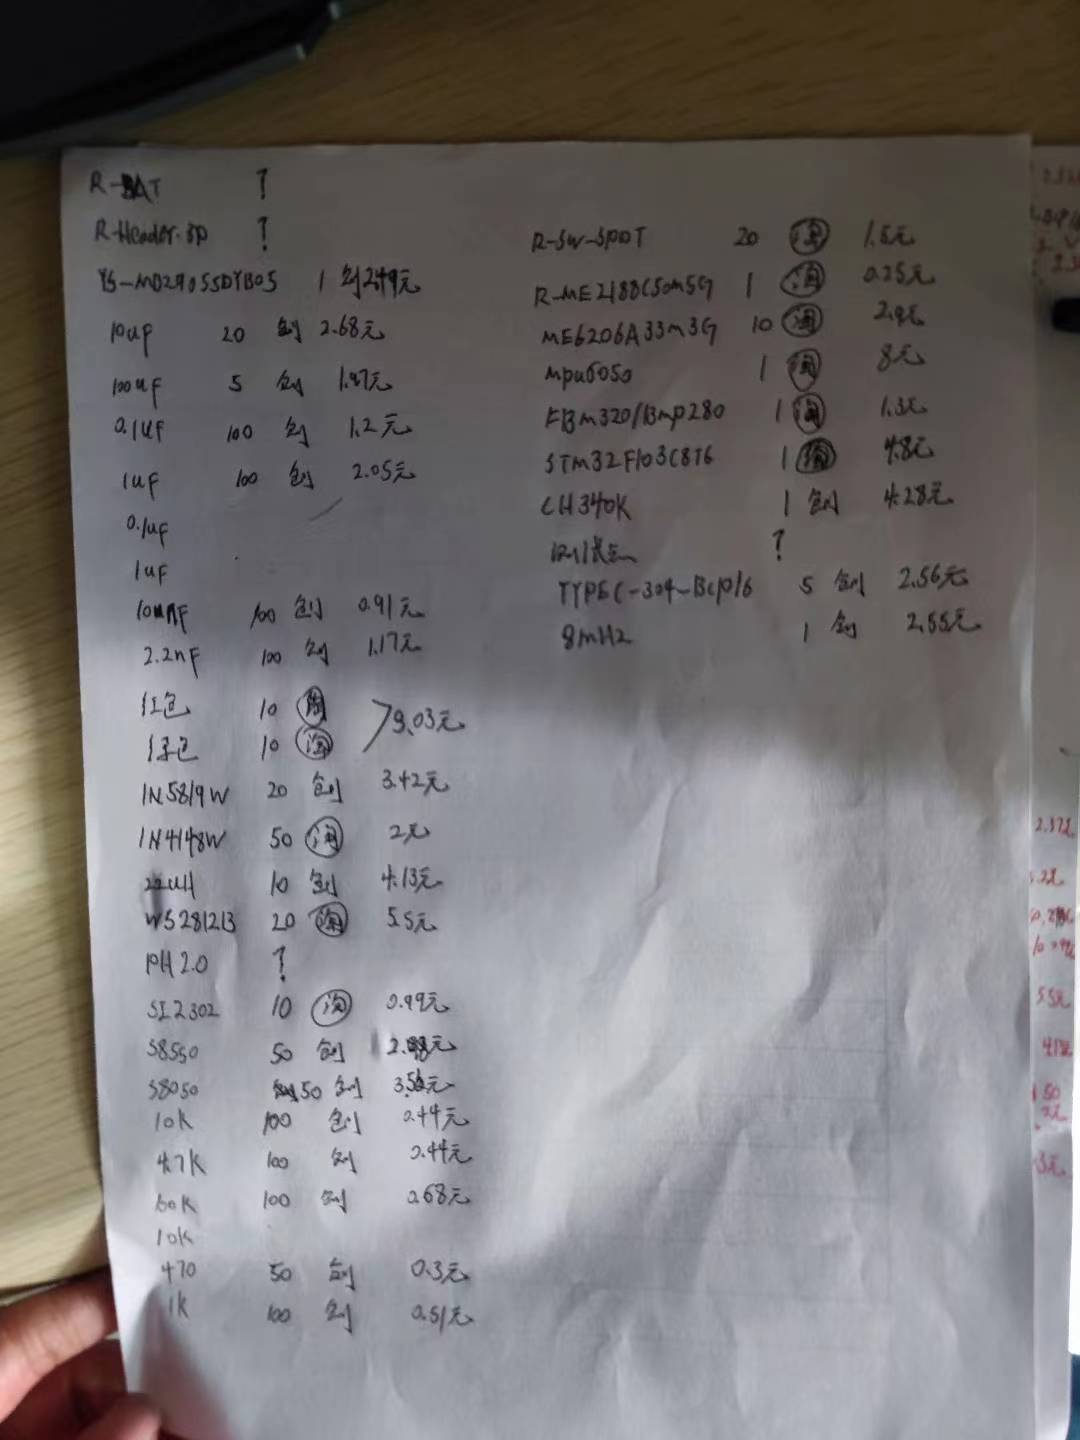 R-BAT ?
R-Header-3p ?
10uf 20 创 2.68元
100uf 5 创 1.47元
0.1uf 100 创 1.2元
1uf 100 创 2.05元
0.1uf
1uf
100 创 0.91元
2.2nf 100 创 1.17元
红色 10 淘
绿色 10 淘
3.03元
1N5819W 20 创 3.42元
1N4148W 50 淘 2元
22uH 10 创 4.13元
WS2812B 20 淘 5.5元
PH2.0 ?
SI2302 10 淘 0.99元
S8550 50 创
S8050 50 创
10K 100 创 0.44元
4.7K 100 创 0.44元
100 创 0.68元
10K
470 50 创 0.3元
1K 100 创 0.51元
R-SW-SPDT 20 淘
R-ME2188C50M5G 1 淘 0.25元
ME6206A33M3G 10 淘
mpu6050 1 淘 8元
FBm320/Bmp280 1 淘 1.3元
STM32F103C8T6 1 淘 4.8元
CH340K 1 创 4.28元
?
TYPEC-304-BCP16 5 创 2.56元
8mHz 1 创 2.55元
5.5元